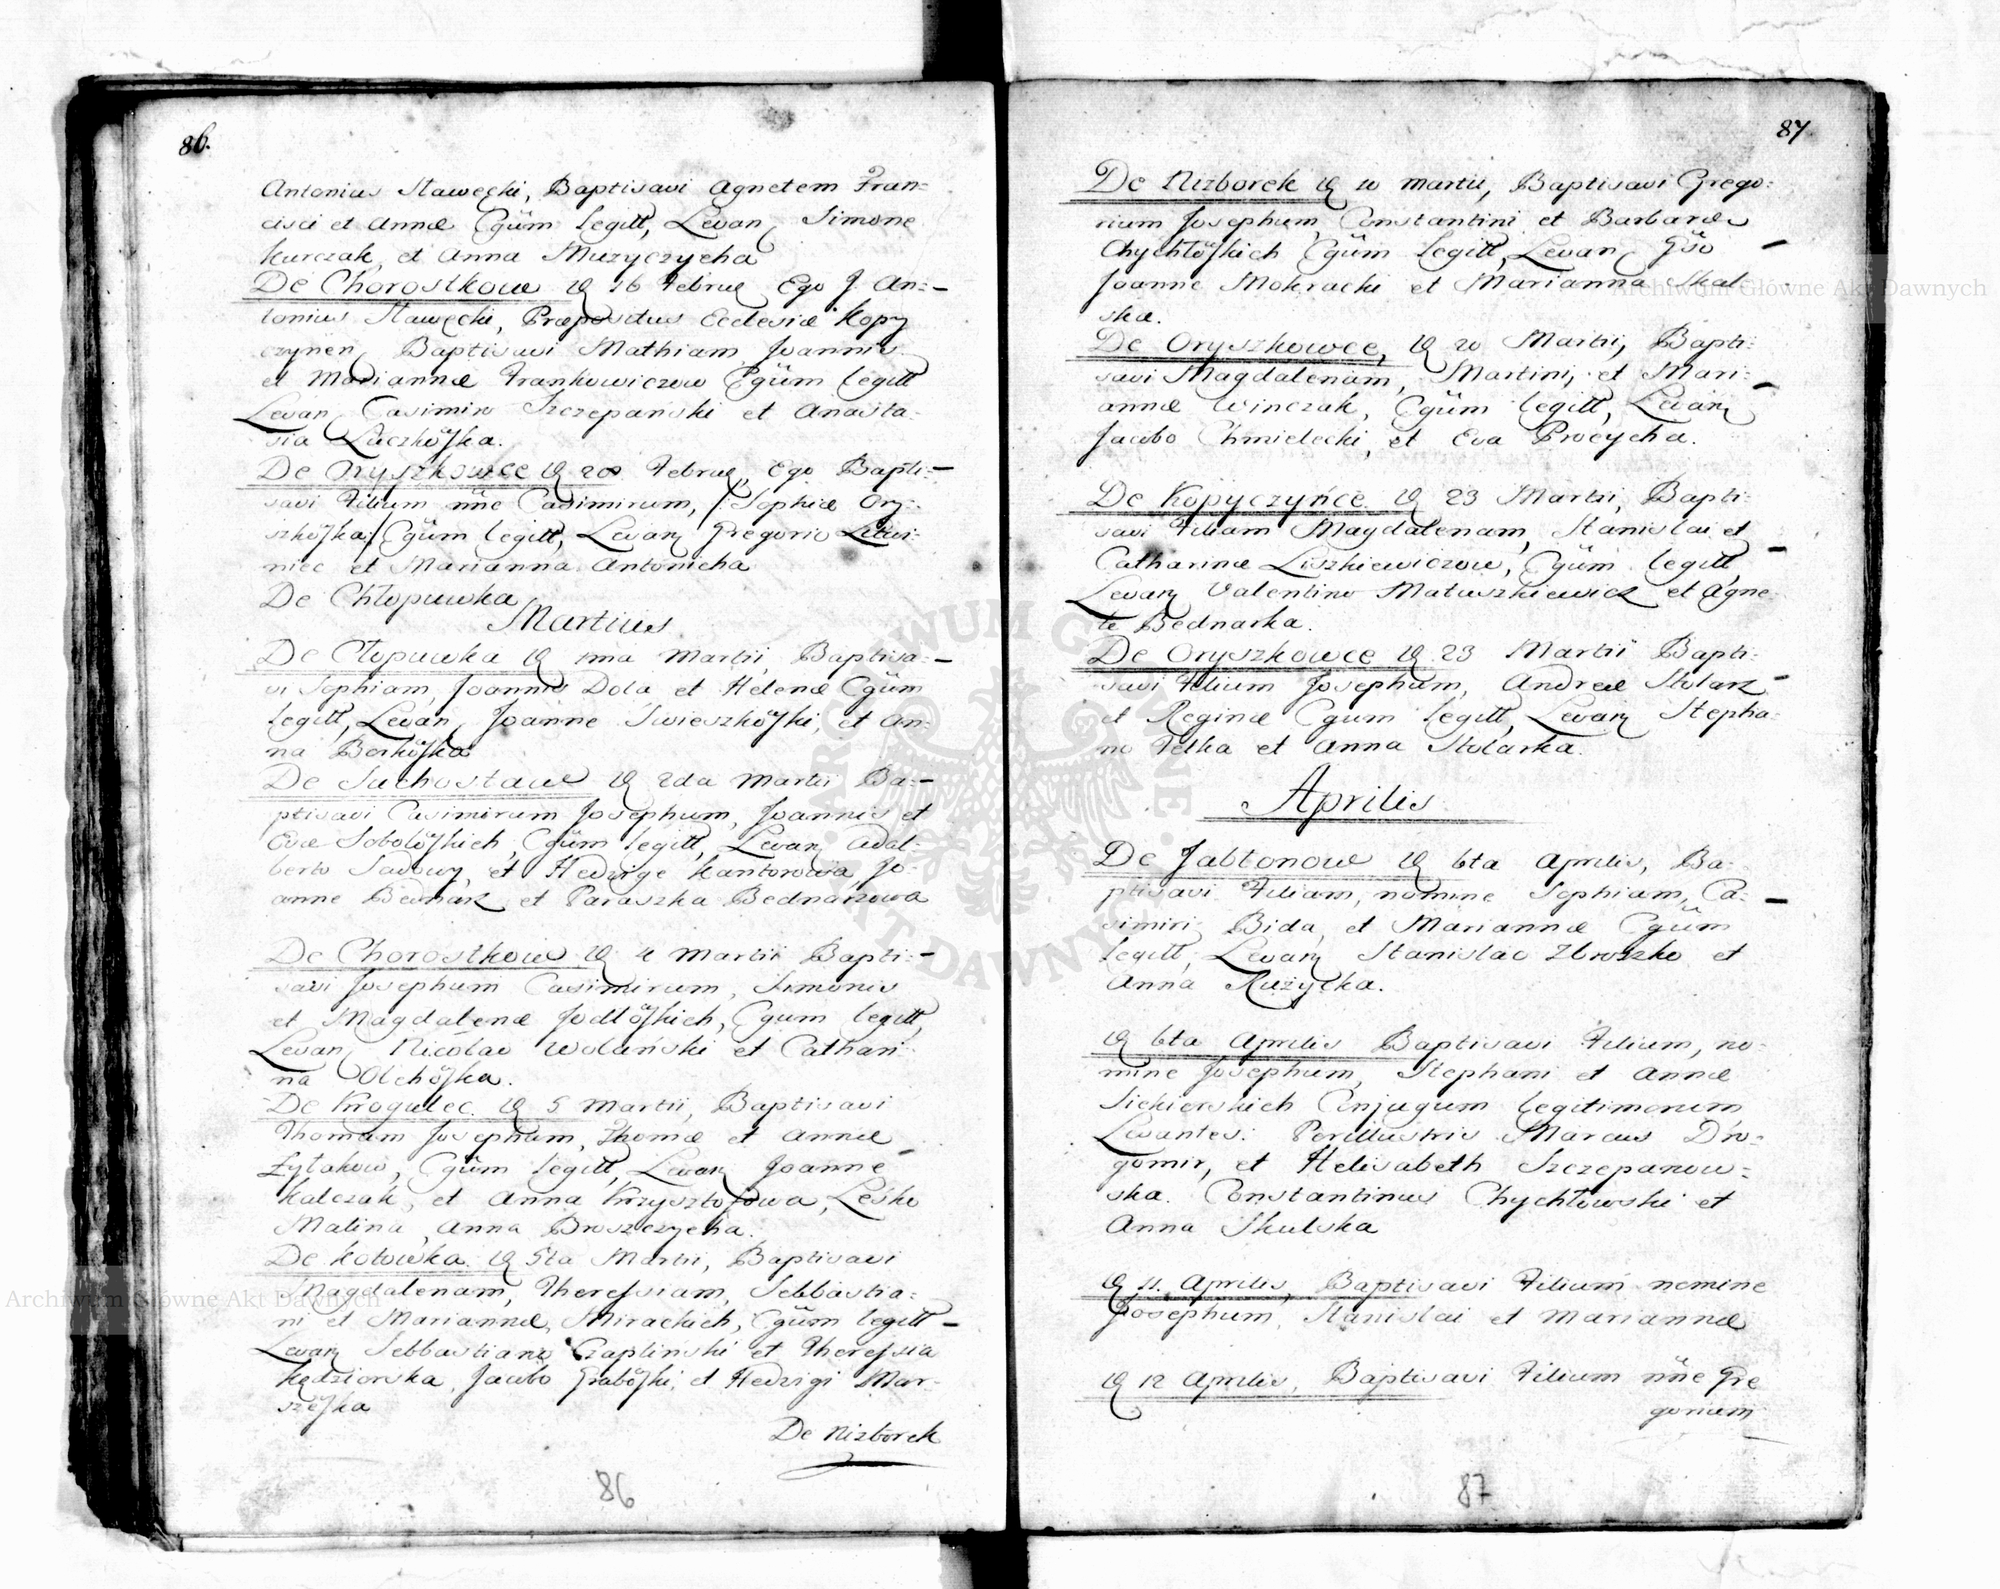 86.
Antonius Sławęcki, Baptisavi Agnetem Fran=
cisci et Annæ Cgũm legitt, Levan, Simone
Kurczak, et Anna Muzyczycha
De Chorostkow D 16 Februa Ego J. An=
tonius Sławęcki, Præpositus Ecclesiæ Kopy
czynen, Baptisavi Mathiam Joannis
et Mariannæ Frankowiczow Cgũm legitt
Levan, Casimiro Szczepański et Anasta=
sia Luczkõska.
De Oryszkowce D 20 Februa, Ego Bapti=
savi Filium nñe Casimirum, /: Sophiæ Ory=
szkõska:/ Cgũm legitt, Levan, Gregorio Litwi=
niec et Marianna Antonicha
De Chłopuwka
Martius
De Cłopuwka D 1ma Martii, Baptisa=
vi Sophiam, Joannis Dola et Helenæ Cgũm
legitt, Levan, Joanne Swieszkõski, et An=
na Borkõska
De Suchostaw D 2da Martii Ba=
ptisavi Casimirum Josephum, Joannis et
Evæ Sobolõskich, Cgũm legitt, Levan, Adal=
berto Sadowy, et Hedvige Kantorowa, Jo=
anne Bednarz et Paraszka Bednarzowa
De Chorostkow D 4 Martii Bapti=
savi Josephum Casimirum, Simonis
et Magdalenæ Jodlõskich, Cgum legitt,
Levan, Nicolao Wolański et Cathari=
na Olchõska.
De Krogulec D 5 Martii, Baptisavi
Thomam Josephum, Thomæ et Annæ
Żyłakow, Cgũm legitt, Levan, Joanne
Kalczak, et Anna Krzysztofowa, Leśko
Malina, Anna Broszczycha.
De Kotowka D 5ta Martii, Baptisavi
Magdalenam, Theressiam, Sebbastia=
ni et Mariannæ Mirackich, Cgũm legitt
Levan, Sebbastiano Czaplinski et Theressia
Kędziorska, Jacobo Grabõski, et Hedvigi Mar=
szẽska
De Nizborek
86
87.
De Nizborek D 10 Martii, Baptisavi Grego=
rium Josephum, Constantini et Barbaræ
Chychłõskich Cgũm legitt, Levan, Gso
Joanne Mokracki et Marianna Skal
ska.
De Oryszkowce, D 20 Martii, Bapti=
savi Magdalenam, Martini, et Mari=
annæ Winczak, Cgũm legitt, Levan,
Jacobo Chmielecki, et Eva Procycha.
De Kopyczyńce D 23 Martii, Bapti=
savi Filiam Magdalenam, Stanislai et
Catharinæ Liszkiewiczow, Cgũm legitt,
Levan, Valentino Matuszkiewicz et Agne
te Bednarka.
De Oryszkowce D 23 Martii Bapti=
savi Filium Josephum, Andreæ Stolarz
et Reginæ Cgum legitt, Levan, Stepha=
no Felka et Anna Stolarka.
Aprilis
De Jabłonow D 6ta Aprilis, Ba=
ptisavi Filiam, nomine Sophiam, Ca=
simiri Bida, et Mariannæ Cgũm
legitt, Levan, Stanislao Zbroszko et
Anna Rużycka.
D 6ta Aprilis Baptisavi Filium, no=
mine Josephum, Stephani et Annæ
Siekierskich Conjugum legitimorum
Levantes: Perillustris Marcus Dro=
gomir, et Helisabeth Szczepanow=
ska. Constantinus Chychłowski et
Anna Skulska
D 11 Aprilis, Baptisavi Filium nomine
Josephum, Stanislai et Mariannæ
D 12 Aprilis, Baptisavi Filium nñe Gre
gorium
87
Archiwum Główne Akt Dawnych
Archiwum Główne Akt Dawnych
ARCHIWUM GŁÓWNE AKT DAWNYCH